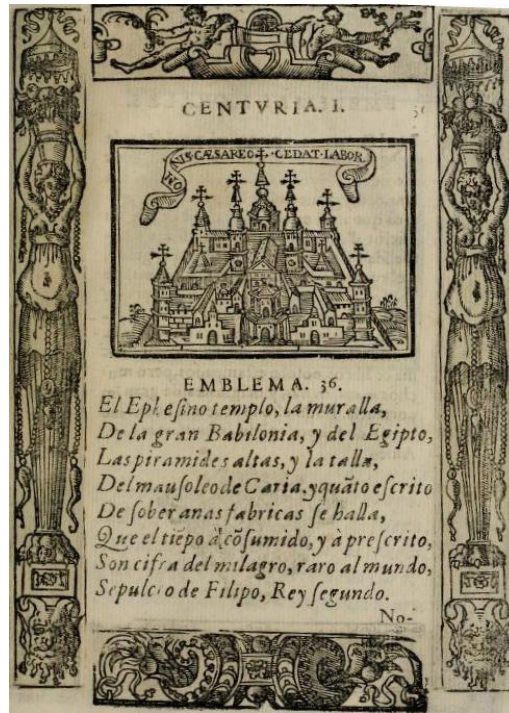 CENTVRIA. I.
NIS·CÆSAREO·CEDAT·LABOR
EMBLEMA. 36.
El Epheſino templo, la muralla,
De la gran Babilonia, y del Egipto,
Las piramides altas, y la talla,
Del mauſoleo de Caria. y quãto eſcrito
De ſoberanas fabricas ſe halla,
Que el tiẽpo à cõſumido, y à preſcrito,
Son cifra del milagro, raro al mundo,
Sepulcro de Filipo, Rey ſegundo.
No-